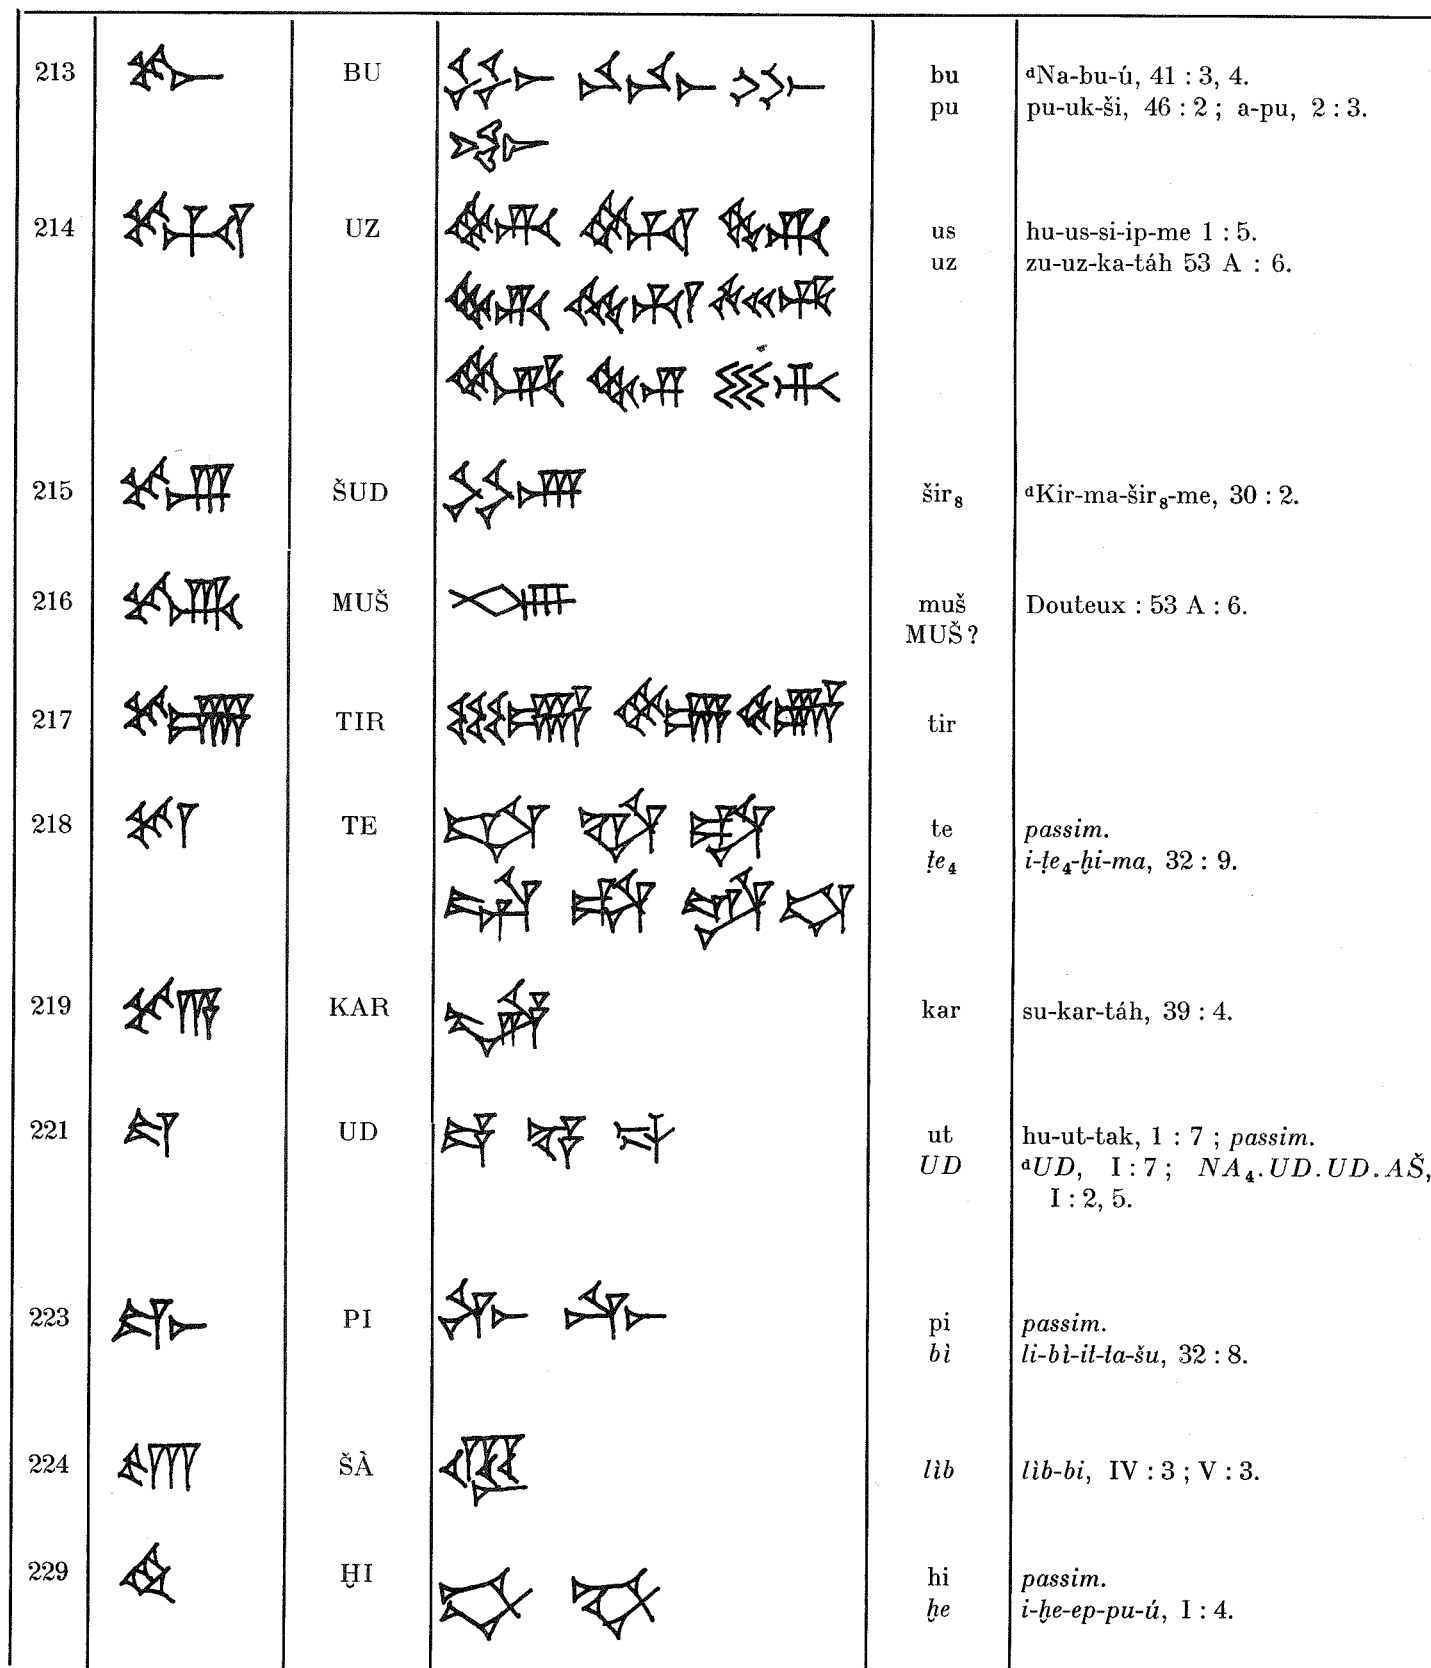 213 BU bu ᵈNa-bu-ú, 41 : 3, 4.
pu pu-uk-ši, 46 : 2 ; a-pu, 2 : 3.
214 UZ us hu-us-si-ip-me 1 : 5.
uz zu-uz-ka-táh 53 A : 6.
215 ŠUD šir₈ ᵈKir-ma-šir₈-me, 30 : 2.
216 MUŠ muš Douteux : 53 A : 6.
MUŠ ?
217 TIR tir
218 TE te passim.
ṭe₄ i-ṭe₄-ḫi-ma, 32 : 9.
219 KAR kar su-kar-táh, 39 : 4.
221 UD ut hu-ut-tak, 1 : 7 ; passim.
UD ᵈUD, I : 7 ; NA₄.UD.UD.AŠ,
I : 2, 5.
223 PI pi passim.
bì li-bì-it-ta-šu, 32 : 8.
224 ŠÀ lìb lìb-bi, IV : 3 ; V : 3.
229 ḪI hi passim.
ḫe i-ḫe-ep-pu-ú, I : 4.